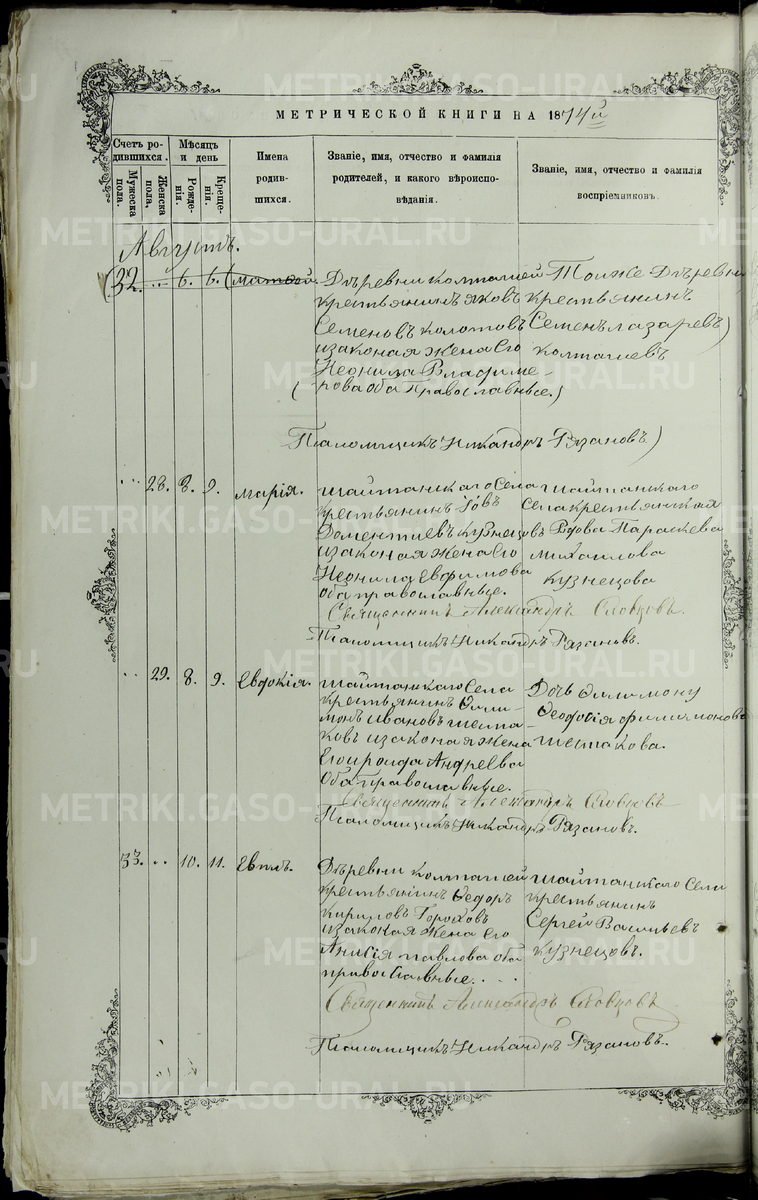 МЕТРИЧЕСКОЙ КНИГИ НА 1874й
Счетъ родившихся.
Мѣсяцъ и день
Имена родившихся.
Званіе, имя, отчество и фамилія родителей, и какого вѣроисповѣданія.
Званіе, имя, отчество и фамилія воспріемниковъ.
Мужеска пола.
Женска пола.
Рожденія.
Крещенія.
Августъ.
32. .. 6. 6.
Деревни Колташей
крестьянинъ Яковъ
Семеновъ Колотовъ
изаконая жена Его
Неонила Владиме-
рова оба Православные.)
Тоиже Деревни
крестьянинъ
Семенъ Лазаревъ)
Колташевъ
Псаломщикъ Никандръ Рязановъ)
.. 28. 8. 9. Марія.
Шайтанскаго Села
крестьянинъ Іовъ
Доментиевъ Кузнецовъ
изаконая жена Его
Неонила Евфимова
оба православные.
Шайтанскаго
Села крестьянская
Вдова Параскева
Михаилова
Кузнецова
Священникъ Александръ Словцовъ.
Псаломщикъ Никандръ Рязановъ.
.. 29. 8. 9. Евдокія.
Шайтанскаго Села
крестьянинъ Фили-
монъ Ивановъ Шеста-
ковъ изаконая жена
Андреева
Оба православные.
Дочь Филимону
Феодосія Филимонова
Шестакова.
Священникъ Александръ Словцовъ
Псаломщикъ Никандръ Рязановъ.
33. .. 10. 11. Евплъ.
Деревни Колташей
крестьянинъ Федоръ
Кириловъ Гороховъ
изаконая жена Его
Анисія Павлова оба
православные. . .
Шайтанскаго Села
крестьянинъ
Сергей Васильевъ
Кузнецовъ.
Священникъ Александръ Словцовъ
Псаломщикъ Никандръ Рязановъ.
METRIKI.GASO-URAL.RU